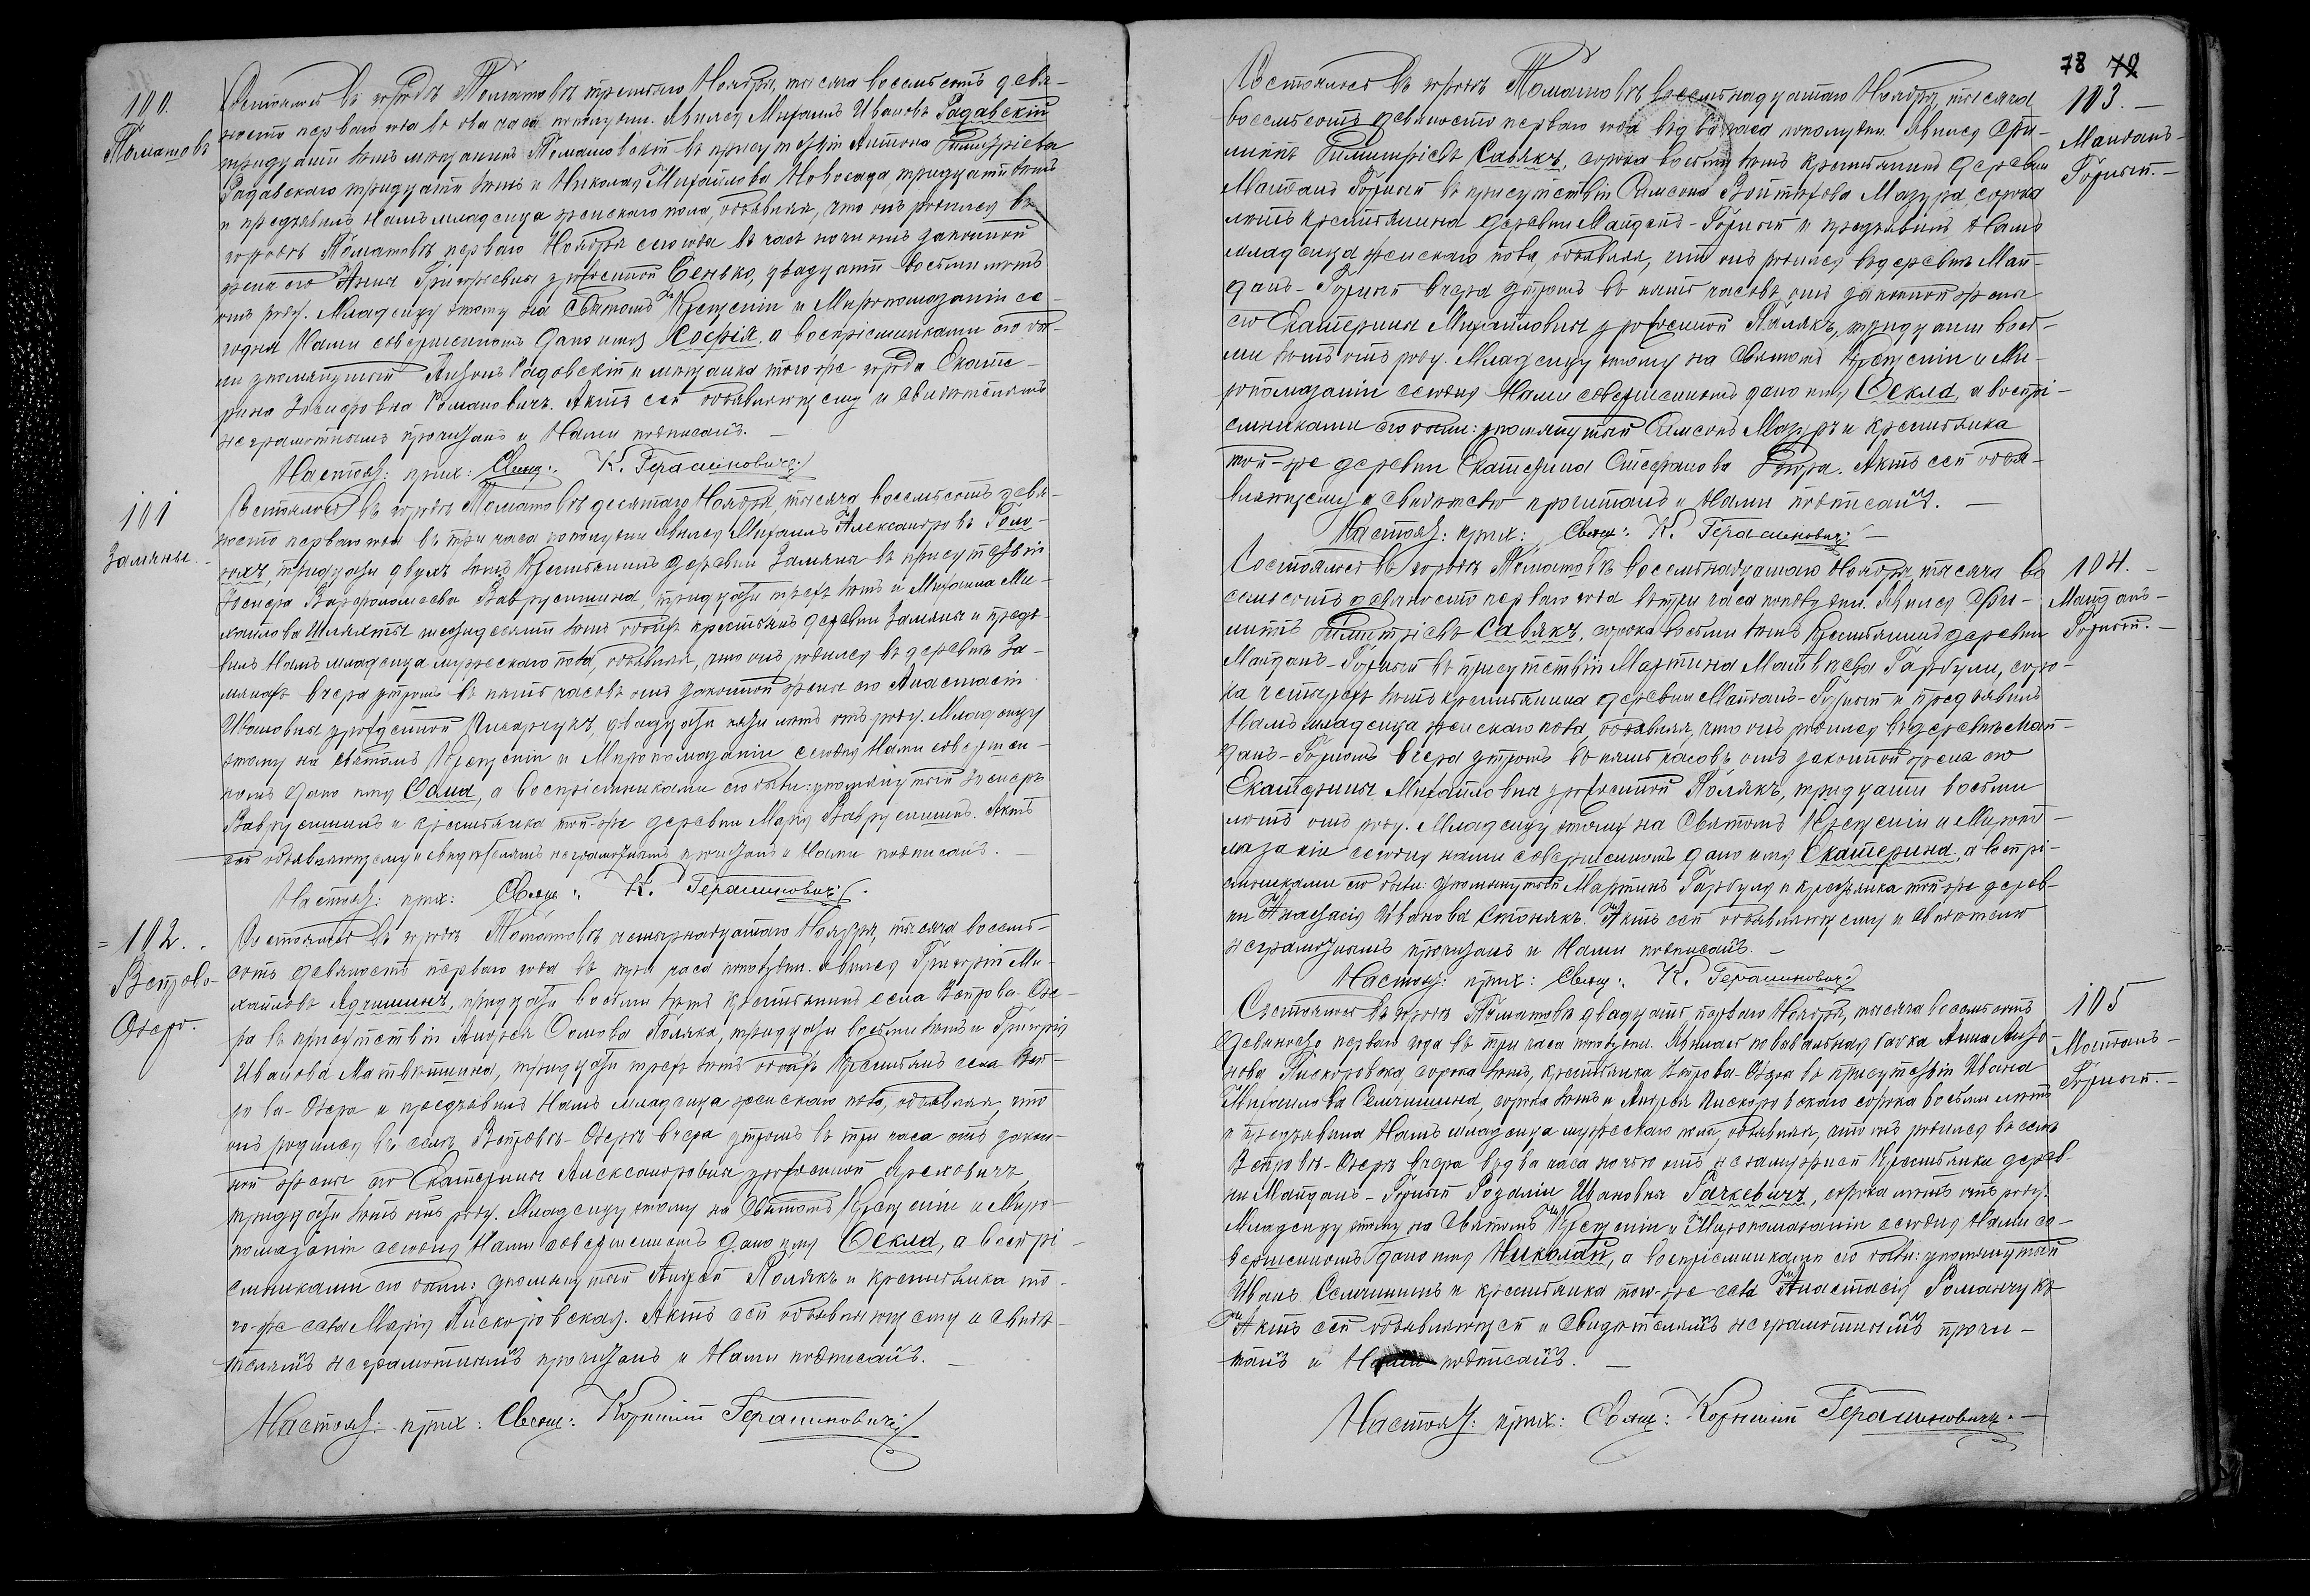 100.
Томашовъ
Состоялось въ городѣ Томашовѣ третьяго Ноября, тысяча восемьсотъ девя-
носто перваго года въ два часа пополудни. Явился Михаилъ Ивановъ Радавскій
тридцати лѣтъ мѣщанинъ Томашовскій въ присутствіи Антона Димитріева
Радавскаго тридцати лѣтъ и Николая Михайлова Новосада тридцати лѣтъ
и предъявилъ Намъ младенца женскаго пола, объявляя, что онъ родился въ
городѣ Томашовѣ перваго Ноября сего года въ часъ ночи отъ законной
жены его Анны Григорьевны урожденной Сенько, двадцати восьми лѣтъ
отъ роду. Младенцу этому на Святомъ Крещеніи и Миропомазаніи се-
годня Нами совершенномъ дано имя Софія, а воспріемниками его бы-
ли упомянутый Антонъ Радовскій и мѣщанка того же города Екате-
рина Романовичъ. Актъ сей объявляющему и свидѣтелямъ
неграмотнымъ прочитанъ и Нами подписанъ. —
Настоят: прих: Свящ: К. Герасиновичъ
101
Замяны.
Состоялось въ городѣ Томашовѣ десятаго Ноября, тысяча восемьсотъ девя-
носто перваго года въ три часа пополудни Явился Михаилъ Александровъ
тридцати двухъ лѣтъ Крестьянинъ деревни Замяны въ присутствіи
Іосифа Варфоломеева Ваврусишина, тридцати трехъ лѣтъ и Михаила Ми-
хайлова Шляхты шестидесяти лѣтъ обоихъ крестьянъ деревни Замяны и предъ-
вилъ Намъ младенца мужескаго пола, объявляя, что онъ родился въ деревнѣ За-
мянахъ вчера утромъ въ пять часовъ отъ законной жены его Анастасіи
Ивановны урожденной Писарчукъ, двадцати пяти лѣтъ отъ роду. Младенцу
этому на святомъ Крещеніи и Миропомазаніи сегодня Нами совершен-
номъ дано имя Сома, а воспріемниками его были: упомянутый Іосифъ
Вавруcишинъ и крестьянка той-же деревни Марія Ваврусишинъ. Актъ
сей объявляющему и свидѣтелямъ неграмотнымъ прочитанъ и Нами подписанъ.
Настоят: прих: Свящ: К. Герасиновичъ
= 102.
Вепрово-
Озеро.
Состоялось въ городѣ Томашовѣ четырнадцатаго Ноября, тысяча восемь-
сотъ девяносто перваго года въ три часа пополудни. Явился Григорій Ми-
хайловъ Адчишинъ, тридцати восьми лѣтъ крестьянинъ села Вепрова-Озе-
ра въ присутствіи Андрея Сомова Поляка, тридцати восьми лѣтъ и Григорія
Иванова Матвѣишина, тридцати трехъ лѣтъ обоихъ Крестьянъ села Веп-
рова-Озера и предъявилъ Намъ младенца женскаго пола, объявляя, что
онъ родился въ селѣ Вепровѣ-Озерѣ вчера утромъ въ три часа отъ закон-
ной жены его Екатерины Александровны урожденной
тридцати лѣтъ отъ роду. Младенцу этому на Святомъ Крещеніи и Миро-
помазаніи сегодня Нами совершенномъ дано имя Ѳекла, а воспрі-
емниками его были: упомянутый Андрей Полякъ и крестьянка то-
го-же села Марія Пискоровская. Актъ сей объявляющему и свидѣ-
телямъ неграмотнымъ прочитанъ и Нами подписанъ. —
Настоят: прих: Свящ: Корнилій Герасиновичъ
78 79
103. —
Майданъ-
Горный. —
Состоялось въ городѣ Томашовѣ восемьнадцатаго Ноября, тысяча
восемьсотъ девяносто перваго года въ два часа пополудни. Явился
Димитріевъ Савякъ, сорока восьми лѣтъ крестьянинъ деревни
Майданъ Горный въ присутствіи Симеона Войтѣхова Мазура, сорока
лѣтъ крестьянина деревни Майданъ-Горный и предъявилъ Намъ
младенца женскаго пола, объявляя, что онъ родился въ деревнѣ Май-
данъ-Горный вчера утромъ въ пять часовъ отъ законной жены
его Екатерины Михайловны урожденной Полякъ, тридцати вось-
ми лѣтъ отъ роду. Младенцу этому на Святомъ Крещеніи и Ми-
ропомазаніи сегодня Нами совершенномъ дано имя Ѳекла, а воспрі-
емниками его были: упомянутый Симеонъ Мазуръ и крестьянка
той-же деревни Екатерина Стефанова. Актъ сей объя-
вляющему и свидѣтелю прочитанъ и Нами подписанъ. —
Настоят: прих: Свящ: К. Герасиновичъ —
104. —
Майданъ-
Горный. —
Состоялось въ городѣ Томашовѣ восемьнадцатаго Ноября, тысяча во
семьсотъ девяносто перваго года въ три часа пополудни. Явился
Димитріевъ Савякъ, сорока восьми лѣтъ Крестьянинъ деревни
Майданъ-Горный въ присутствіи Мартина Матвѣева Гарбули, соро-
ка четырехъ лѣтъ крестьянина деревни Майданъ-Горный и предъявилъ
Намъ младенца женскаго пола, объявляя, что онъ родился въ деревнѣ Май-
данъ-Горномъ вчера утромъ въ пять часовъ отъ законной жены его
Екатерины Михайловны урожденной Полякъ, тридцати восьми
лѣтъ отъ роду. Младенцу этому на Святомъ Крещеніи и Миропо-
мазаніи сегодня нами совершенномъ дано имя Екатерина, а воспрі-
емниками его были: упомянутый Мартинъ Гарбуля и крестьянка той же дерев-
ни Анастасія Иванова. Актъ сей объявляющему и свидѣтелю
неграмотнымъ прочитанъ и Нами подписанъ. —
Настоят: прих: Свящ: К. Герасиновичъ
105
Майданъ-
Горный. —
Состоялось въ городѣ Томашовѣ двадцать перваго Ноября, тысяча восемьсотъ
девяносто перваго года въ три часа пополудни. Явилась повивальная бабка Анна
Пискоровска, сорока лѣтъ, крестьянка Вепрова-Озера въ присутствіи Ивана
Михайлова Семчишина, сорока лѣтъ и Андрея Пискоровскаго сорока восьми лѣтъ
и предъявила Намъ младенца мужескаго пола, объявляя, что онъ родился въ селѣ
Вепровѣ-Озерѣ вчера въ два часа ночью отъ незамужней Крестьянки дерев-
ни Майданъ-Горный Розаліи Ивановны Гачкевичъ, сорока лѣтъ отъ роду.
Младенцу этому на Святомъ Крещеніи и Миропомазаніи сегодня Нами со-
вершенномъ дано имя Николай, а воспріемниками его были: упомянутый
Иванъ Семчишинъ и крестьянка того-же села Анастасія Романчукъ
Актъ сей объявляющей и Свидѣтелямъ неграмотнымъ прочи-
танъ и Нами подписанъ. —
Настоят: прих: Свящ: Корнилій Герасиновичъ. —